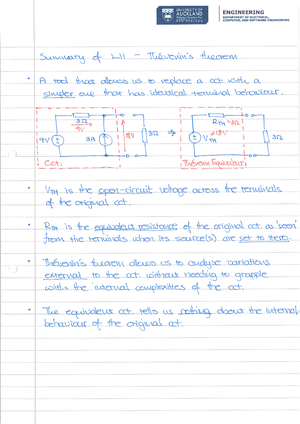 UNIVERSITY OF
AUCKLAND
ENGINEERING
DEPARTMENT OF ELECTRICAL,
COMPUTER, AND SOFTWARE ENGINEERING
Summary of L11 - Thévenin's theorem
• A tool that allows us to replace a cct. with a
simpler one that has identical terminal behaviour.
3Ω
9V
9V
3A
18V
3Ω
⇒
RTH = 3Ω
VTH = 18V
3Ω
Cct.
Thévenin Equivalent
• VTH is the open-circuit voltage across the terminals
of the original cct.
• RTH is the equivalent resistance of the original cct. as 'seen'
from the terminals when its source(s) are set to zero.
• Thévenin's theorem allows us to analyse variations
external to the cct. without needing to grapple
with the internal complexities of the cct.
• The equivalent cct. tells us nothing about the internal
behaviour of the original cct.